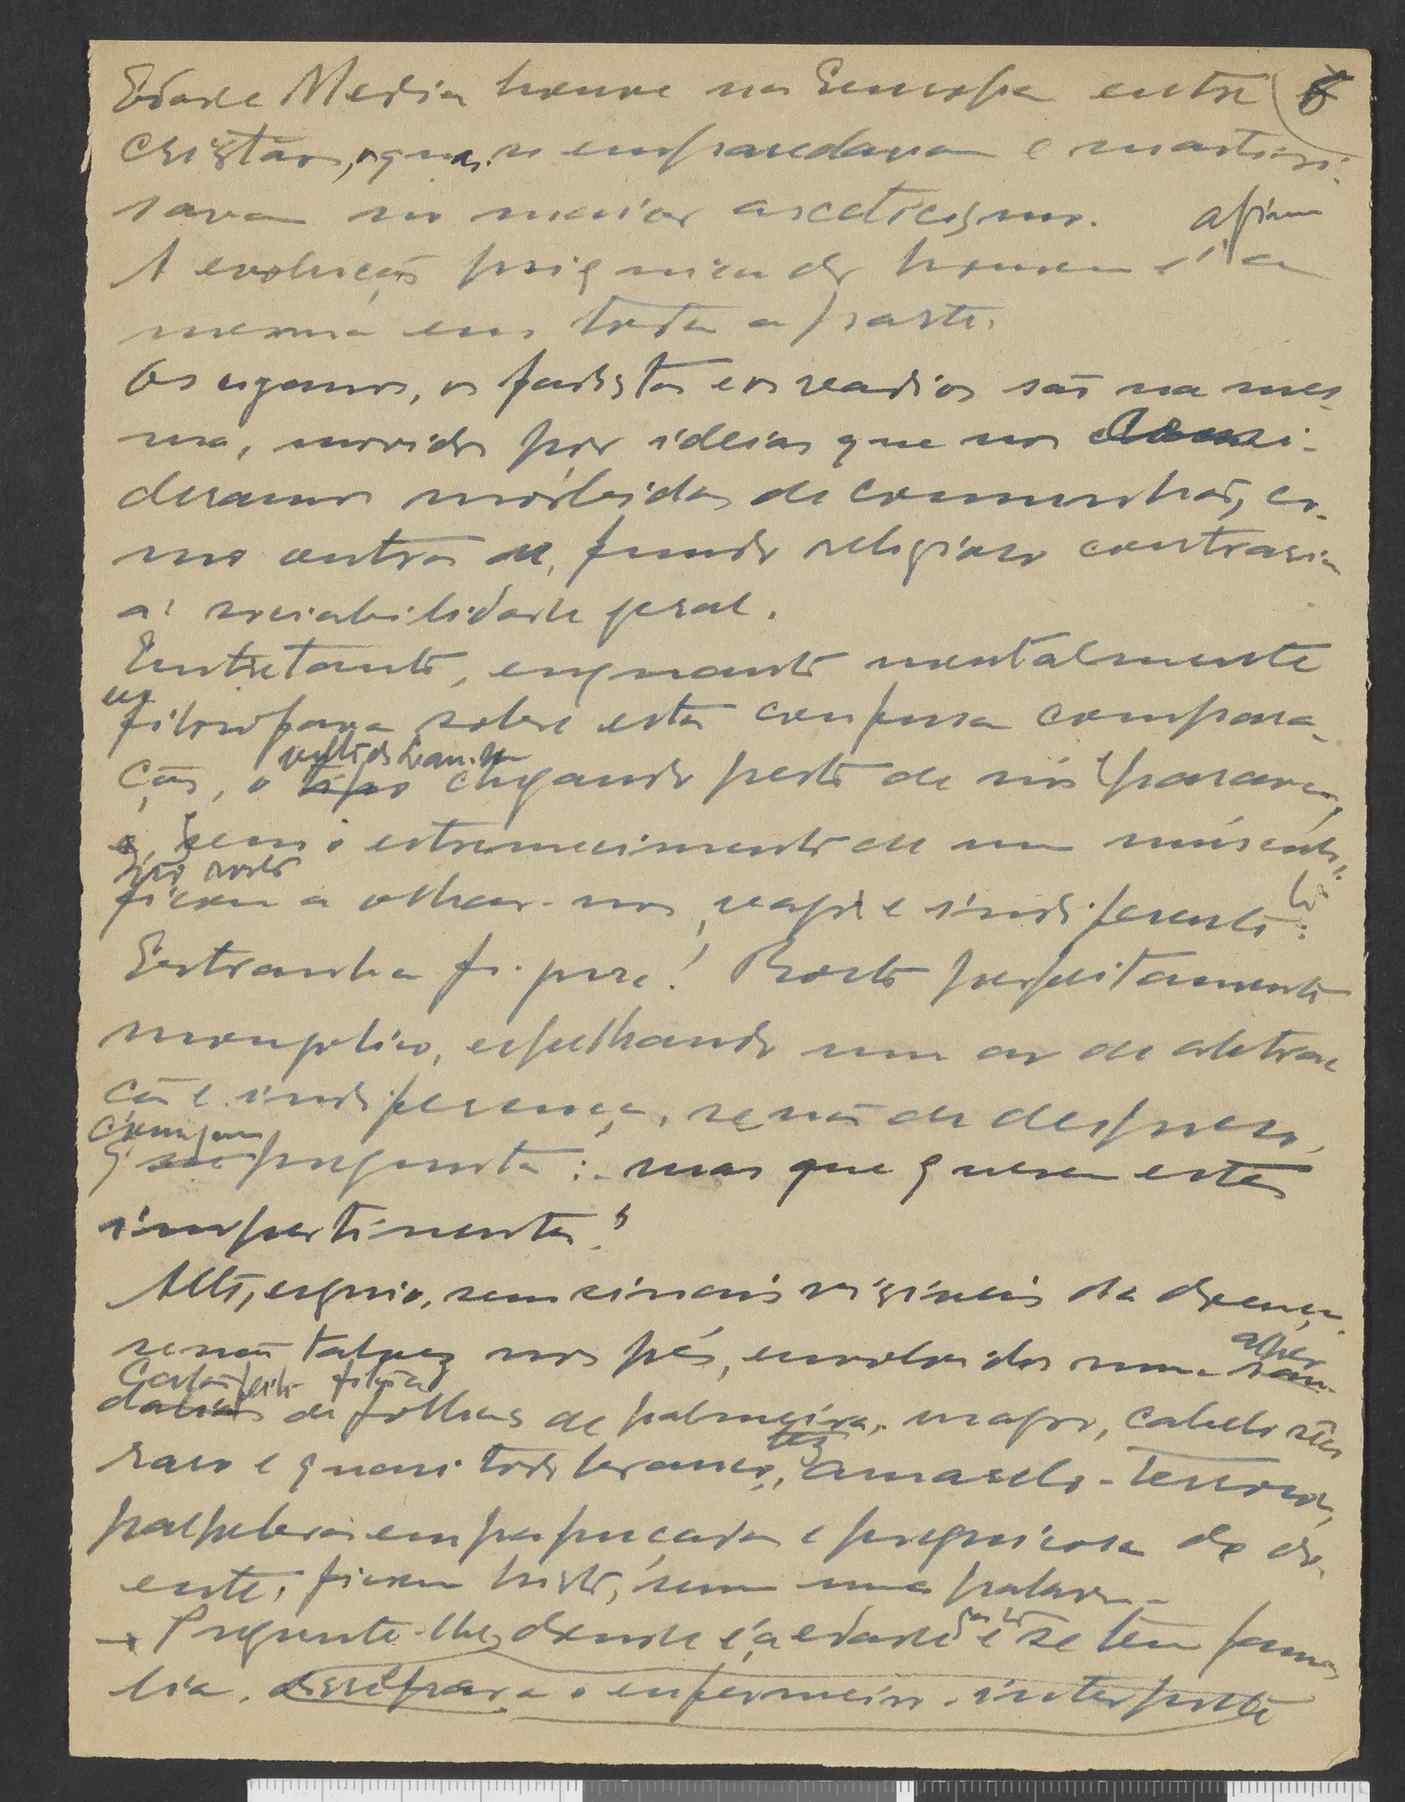 Edade Media houve na Europa entre 8
cristãos, que se emparedavam e martiri-
savam no maior asceticismo.
A evolução psiquica do homem é afinal a
mesma em toda a parte.
Os ugamos, os fadistas e os vadios são na mes-
ma, movidos por ideias que nos consi-
deramos morbidas de comunhão, co-
mo outros de fundo religioso contraria
á sociabilidade geral.
Entretanto, enquanto mentalmente
eu filosofava sobre esta confusa compara-
ção, o velho chegando perto de nós parara,
e sem o estremecimento de um músculo
no rosto
ficou a olhar-nos, vago e indiferente.
Extranha figura! Rosto perfeitamente
mongolico, espelhando um ar de abstrac
ção e indiferença, senão de despreso,
como quem pregunta: mas que querem estes
impertinentes?
Alto, esguio, sem sinais visiveis da doença
senão talvez nos pés, envolvidos numa
de folhas de palmeira, magro, cabelo
raro e quasi todo branco, tez amarelo-terrosa,
palpebras empapuçadas e preguiçosas de do-
ente, ficou hirto, sem uma palavra.
— Pregunte-lhe, donde é, a edade e se tem fami
lia. o enfermeiro-interprete